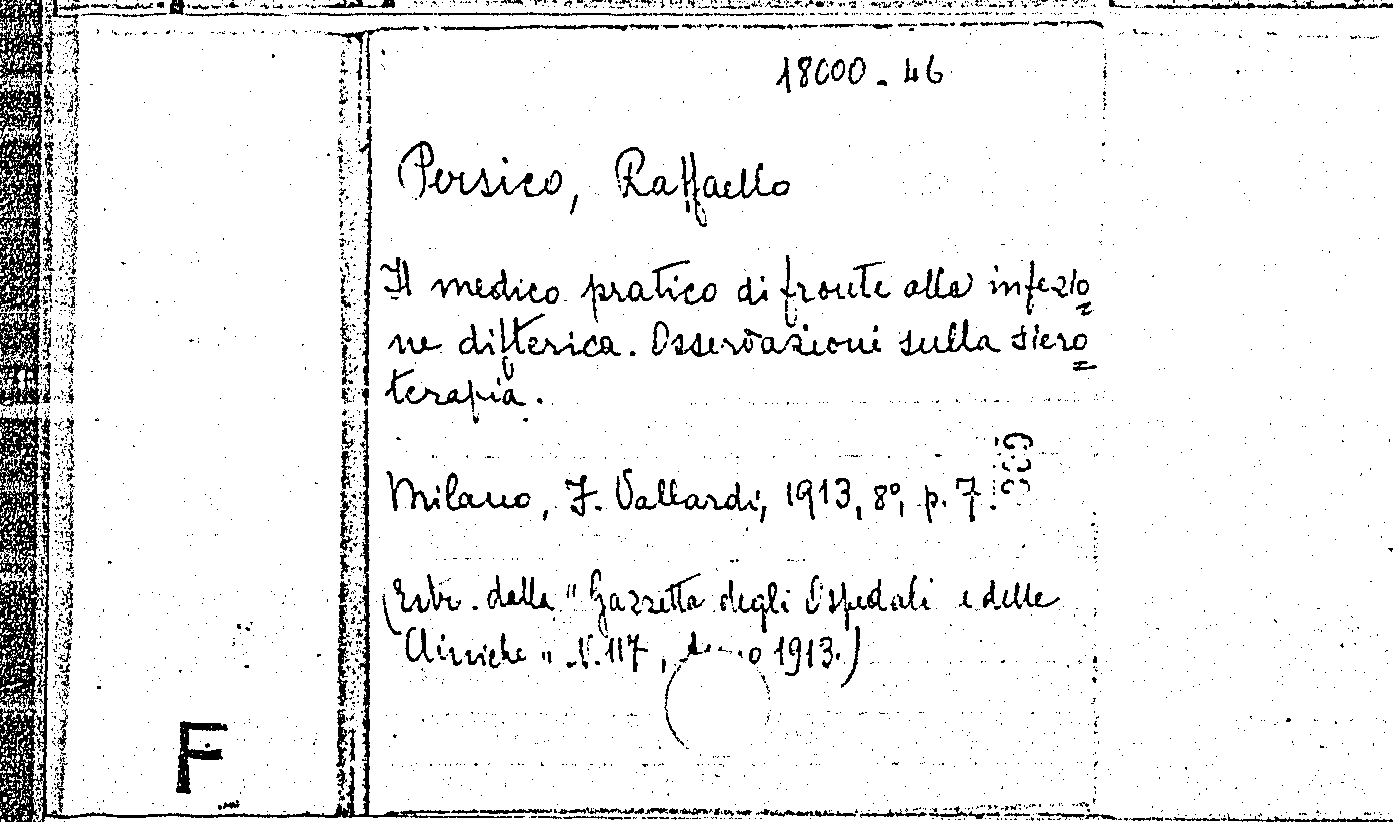 18000 - 46
Persico, Raffaello
Il medico pratico di fronte alla infezio=
ne difterica. Osservazioni sulla siero=
terapia.
Milano, F. Vallardi, 1913, 8°, p. 7.
(Estr. dalla "Gazzetta degli Ospedali e delle
Cliniche" N. 117, 1913.)
F